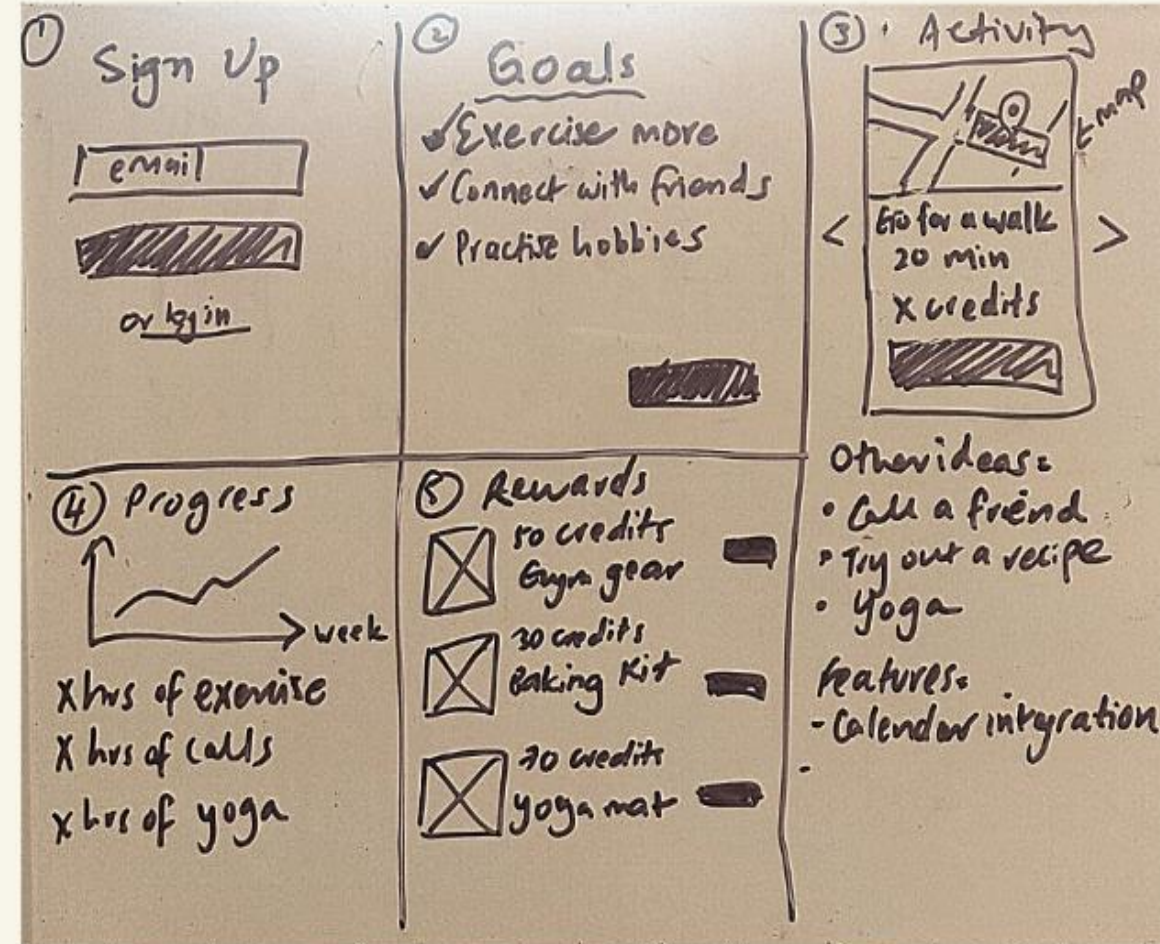 ① Sign Up
email
or login
② Goals
✓ Exercise more
✓ Connect with friends
✓ Practise hobbies
③ • Activity
← map
<
Go for a walk
20 min
X credits
>
Other ideas:
• Call a friend
• Try out a recipe
• Yoga
Features:
- Calendar integration
-
④ Progress
week
X hrs of exercise
X hrs of calls
X hrs of yoga
⑤ Rewards
50 credits
Gym gear
30 credits
Baking Kit
credits
yoga mat